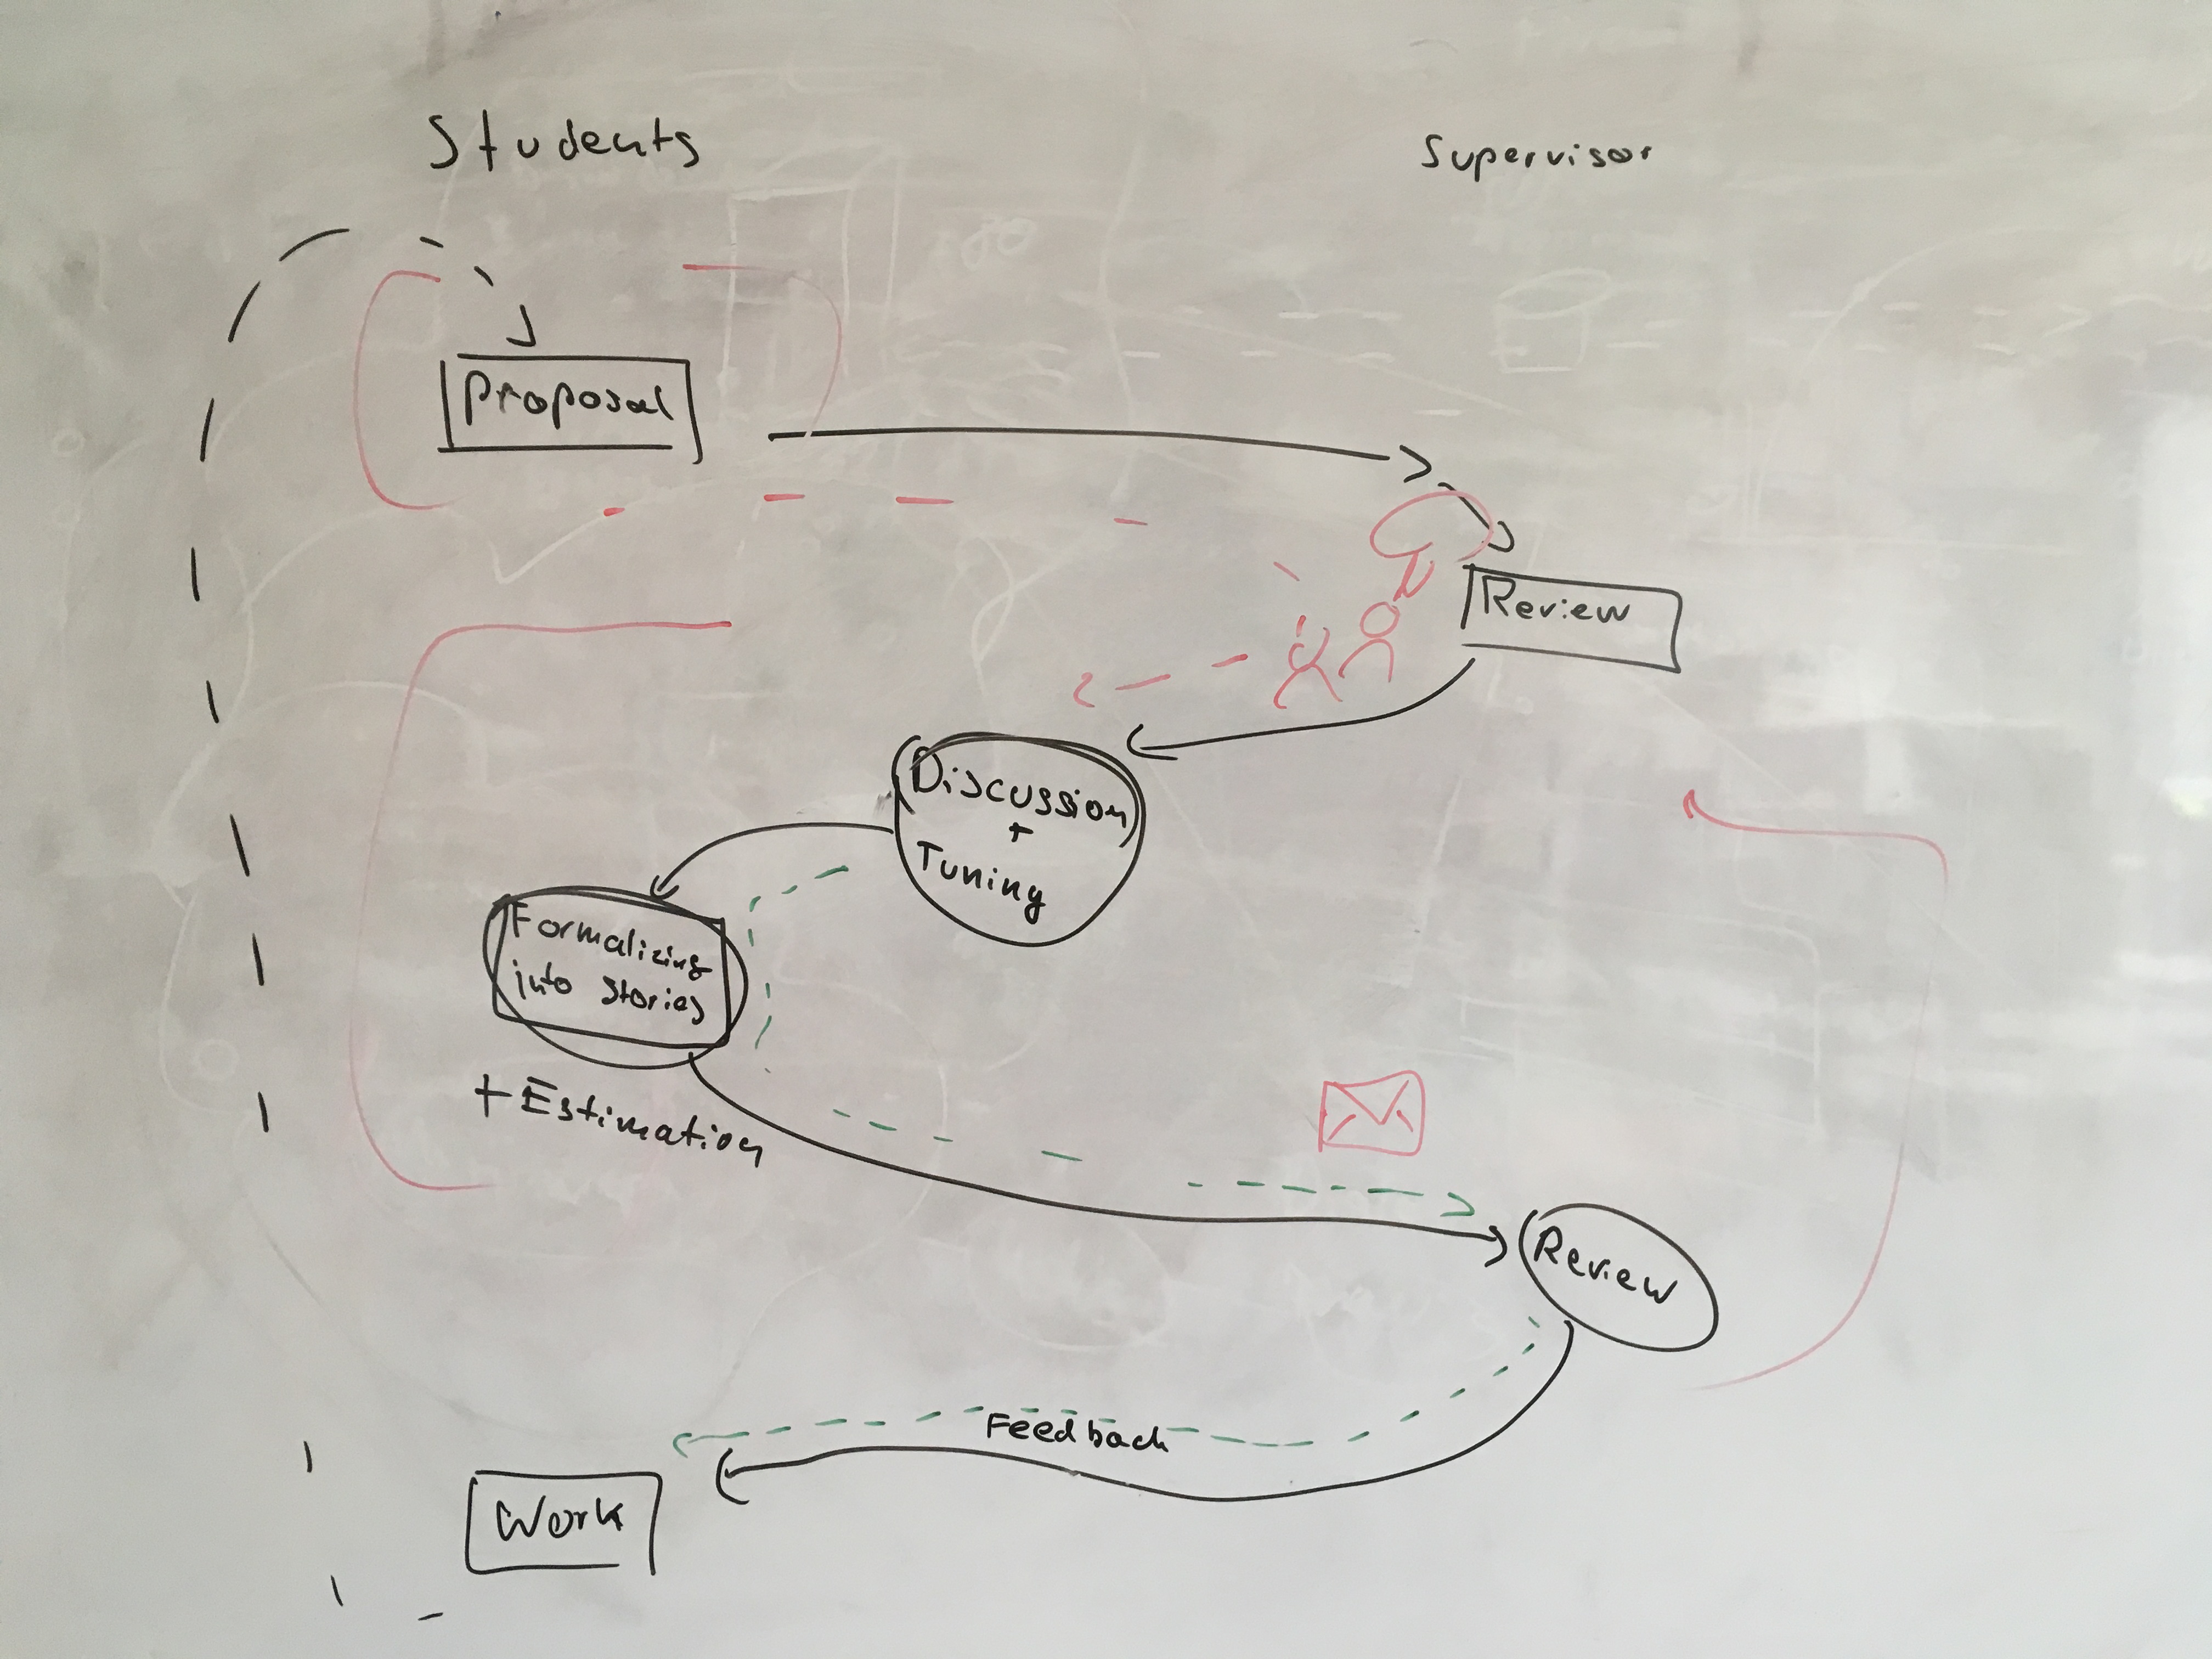 Students
Supervisor
Proposal
Review
Discussion
+
Tuning
Formalizing
into Stories
+ Estimation
Review
Feedback
Work